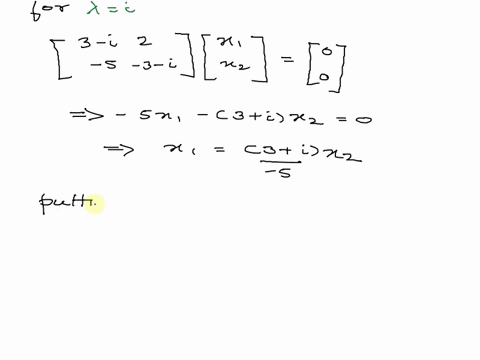 for λ = i
[ 3-i 2 ] [ x1 ] = [ 0 ]
[ -5 -3-i ] [ x2 ] [ 0 ]
=> -5x1 - (3+i)x2 = 0
=> x1 = (3+i)x2 / -5
putti